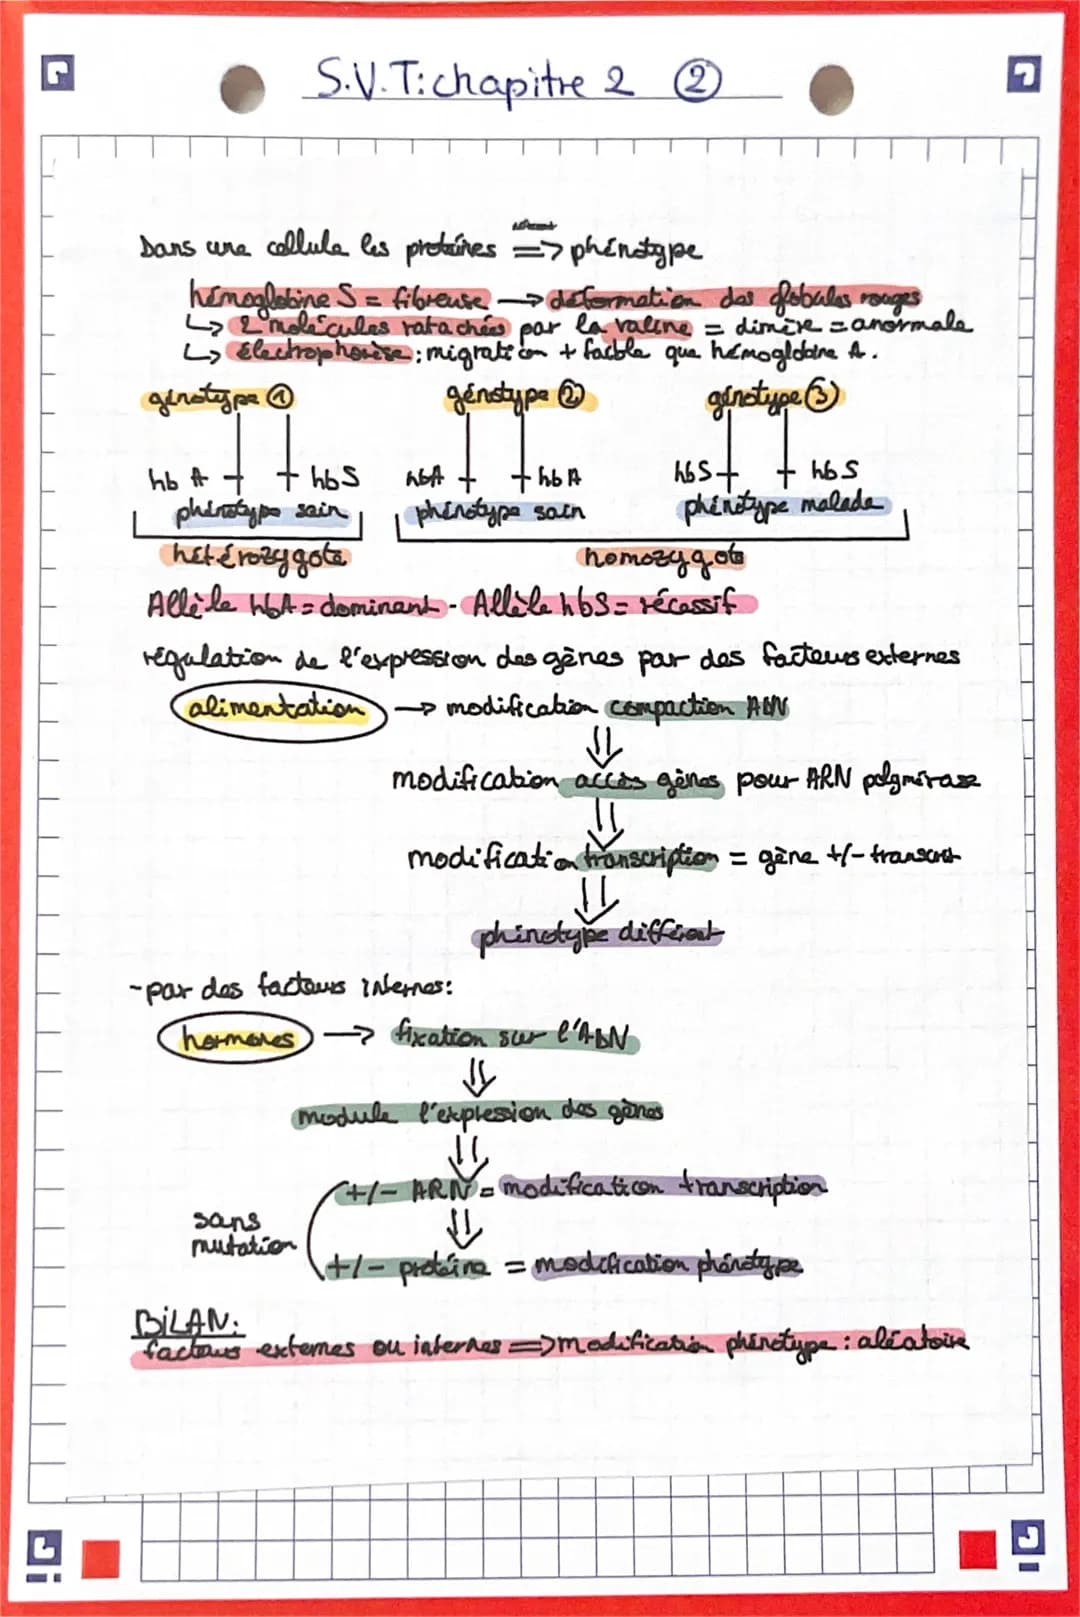 S.V.T: chapitre 2 ②
Dans une cellule les protéines => phénotype
hémoglobine S = fibreuse → déformation des globules rouges
↳ 2 molécules ratachées par la valine = dimère = anormale
↳ électrophorèse : migration + faible que hémoglobine A.
génotype ① génotype ② génotype ③
hb A hbS hbA hbA hbS hbS
phénotype sain phénotype sain phénotype malade
hétérozygote homozygote
Allèle hbA = dominant - Allèle hbS = récessif
régulation de l'expression des gènes par des facteurs externes
alimentation → modification compaction ADN
⇓
modification accès gènes pour ARN polymérase
⇓
modification transcription = gène +/- transcrit
⇓
phénotype différent
- par des facteurs internes:
hormones → fixation sur l'ADN
⇓
module l'expression des gènes
⇓
+/- ARN = modification transcription
sans mutation
⇓
+/- protéine = modification phénotype
BILAN:
facteurs externes ou internes => modification phénotype : aléatoire